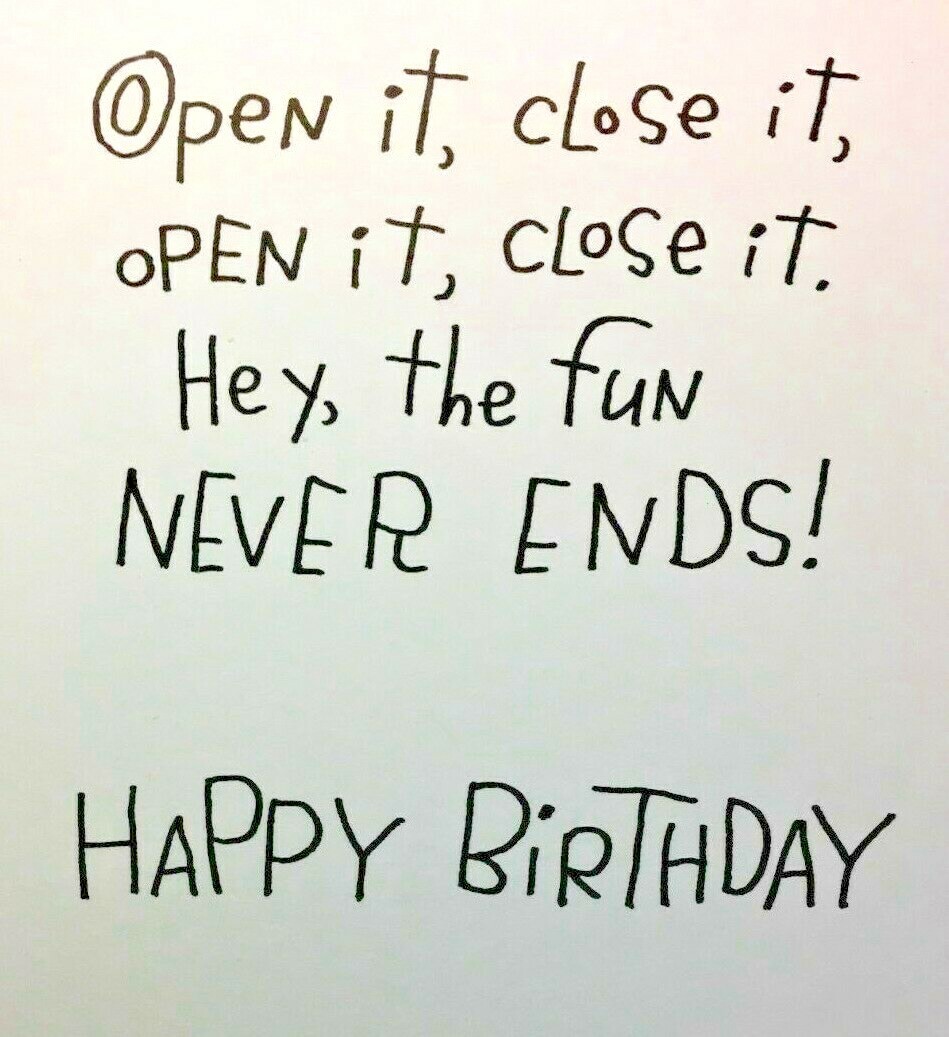 Open it, close it,
oPEN it, close it.
Hey, the fun
NEVER ENDS!
HAPPY BiRTHDAY